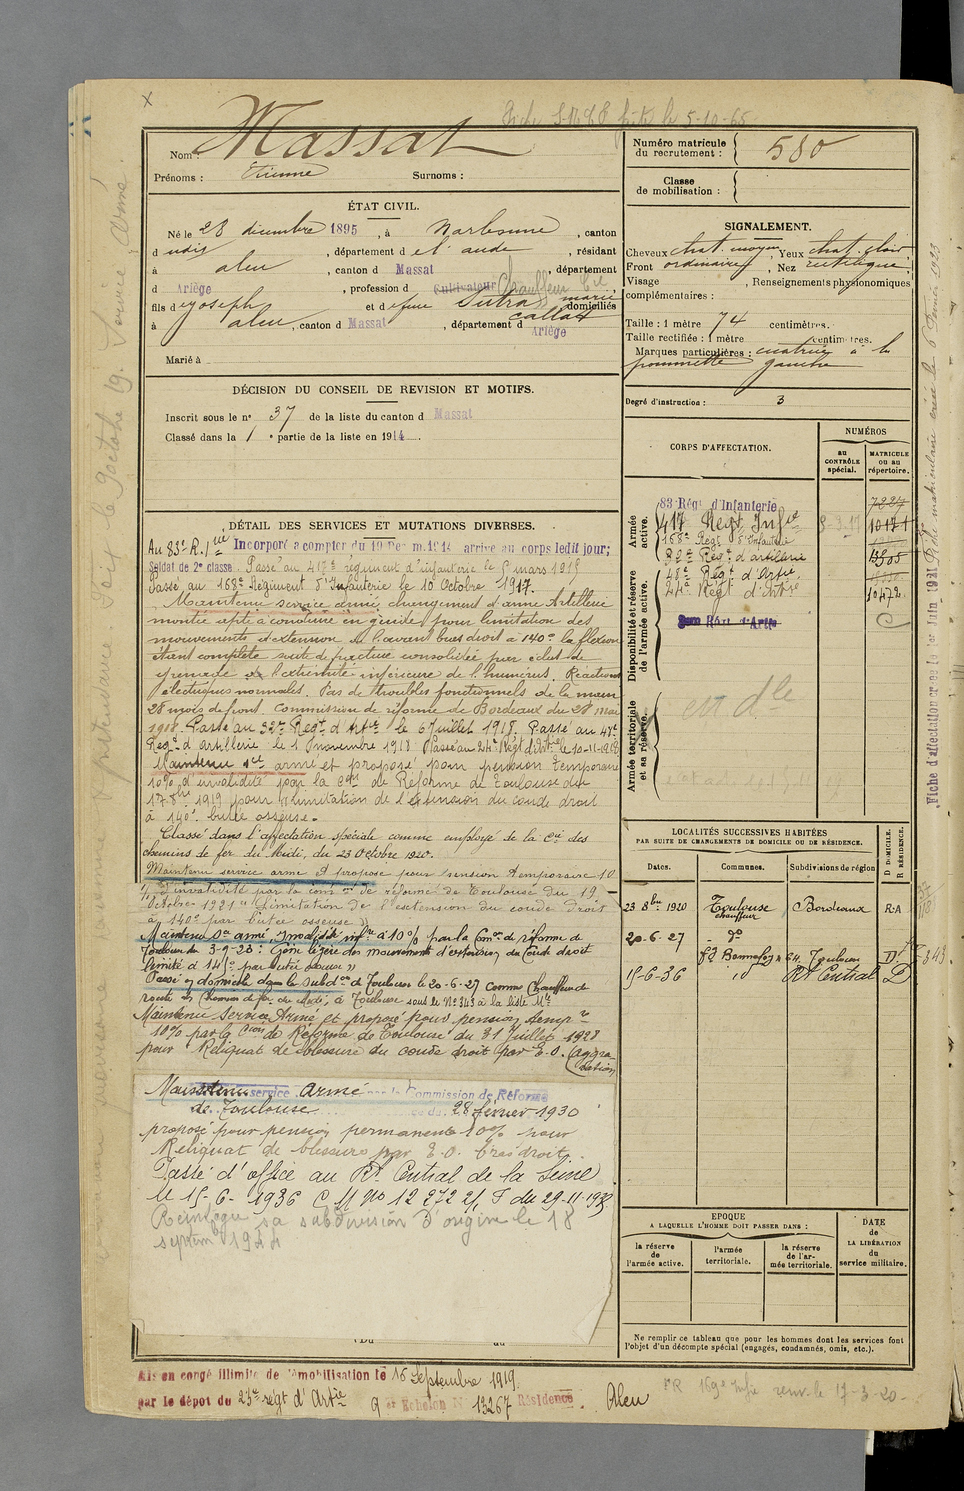 Fiche faite le 5-10-65
Nom : Massat
Prénoms : Etienne Surnoms :
Numéro matricule du recrutement : 580
Classe de mobilisation :
ÉTAT CIVIL.
Né le 28 décembre 1895, à Narbonne, canton
d udis, département d el' aude, résidant
à aleu, canton d Massat, département
d Ariège, profession d Cultivateur Chauffeur
fils d e Joseph et d efeue Sutra marie domiciliés
à aleu, canton d Massat, département d Ariège
Marié à
SIGNALEMENT.
Cheveux chat. moyen, Yeux chat. clair
Front ordinaire, Nez rectiligne
Visage , Renseignements physionomiques
complémentaires :
Taille : 1 mètre 74 centimètres.
Taille rectifiée : 1 mètre centimètres.
Marques particulières : cicatrice à la
pommette gauche
Degré d'instruction : 3
DÉCISION DU CONSEIL DE REVISION ET MOTIFS.
Inscrit sous le n° 37 de la liste du canton d Massat
Classé dans la 1 e partie de la liste en 1914.
DÉTAIL DES SERVICES ET MUTATIONS DIVERSES.
Au 83e R. Incorporé a compter du 19 arrivé au corps ledit jour;
Soldat de 2e classe. Passé au 417e régiment d'infanterie le 9 mars 1917
Passé au 168e Régiment d'Infanterie le 10 Octobre 1917.
Maintenu service armé changement d'arme Artillerie
montée apte à conduire en guides pour limitation des
mouvements d'extension de l'avant bras droit à 140° la flexion
étant complète suite de fracture consolidée par éclat de
grenade de l'extrémité inférieure de l'humérus. Réactions
électriques normales. Pas de troubles fonctionnels de la main
28 mois de front. Commission de réforme de Bordeaux du 28 mai
1918. Passé au 32e Regt d'Artie le 6 Juillet 1918. Passé au 48e
Regt d'artillerie le 1 Novembre 1918 Passé au 24e Regt d'Artie le 10-11-1918
Maintenu sce armé et proposé pour pension temporaire
10% d'invalidité par la de Réforme de Toulouse du
17 8bre 1919 pour "limitation de l'extension du coude droit
à 140° butée osseuse.
Classé dans l'affectation spéciale comme employé de la Cie des
chemins de fer du Midi, du 23 Octobre 1920.
Maintenu service armé et proposé pour pension temporaire 10
% d'invalidité par la com on de réforme de Toulouse du 19
Octobre 1921 "Limitation de l'extension du coude droit
à 140° par butée osseuse"
Maintenu sce armé, invalidité infre à 10% par la Con de réforme de
Toulouse du 3-9-23 : Gêne légère des mouvements d'extension du Coude droit
limité à 145° par butée osseuse"
Passé en domicile dans la subdon de Toulouse le 20-6-27 comme Chauffeur de
route des Chemins de fer du Midi, à Toulouse sous le N° 343 à la liste
Maintenu service Armé et proposé pour pension tempre
10% par la Cion de Réforme de Toulouse du 31 Juillet 1928
pour "Reliquat de blessure du coude droit par E.O. (aggravation)
Maintenu service Armé par la Commission de Réforme
de Toulouse du 28 février 1930
proposé pour pension permanente 10% pour
Reliquat de blessure par E.O. bras droit.
Passé d'office au Rt Central de la Seine
le 15-6-1936 C M No 12 272 du 29-11-1935
Rejoigne sa subdivision d'origine le 18
septem 1944
CORPS D'AFFECTATION.
NUMÉROS
au CONTRÔLE spécial.
MATRICULE OU AU répertoire.
Armée active.
83 Régt d'Infanterie 7227
417 Régt Infie 10171
168e Régt d'Infanterie
32e Régt d'artillerie 13505
48e Régt d'Artie
24e Régt d'Artie 10472
Disponibilité et réserve de l'armée active.
Armée territoriale et sa réserve.
LOCALITÉS SUCCESSIVES HABITÉES
PAR SUITE DE CHANGEMENTS DE DOMICILE OU DE RÉSIDENCE.
Dates. Communes. Subdivisions de région
D DOMICILE. R RÉSIDENCE.
23 8bre 1920 Toulouse chauffeur Bordeaux R.A
20-6-27 do
Bonnefoy 64. Toulouse D
15-6-36 " Rt Central D
EPOQUE
A LAQUELLE L'HOMME DOIT PASSER DANS :
la réserve de l'armée active.
l'armée territoriale.
la réserve de l'armée territoriale.
DATE de LA LIBÉRATION du service militaire.
Ne remplir ce tableau que pour les hommes dont les services font
l'objet d'un décompte spécial (engagés, condamnés, omis, etc.).
Mis en congé illimité de démobilisation le 16 Septembre 1919
par le dépôt du 23e regt d'Artie 9 er Echelon N° 13267 Résidence Aleu
renv. le 17-3-20
Fiche d'affectation créée le 1er Juin 1921 Fiche matriculaire créée le 6 Février 1923